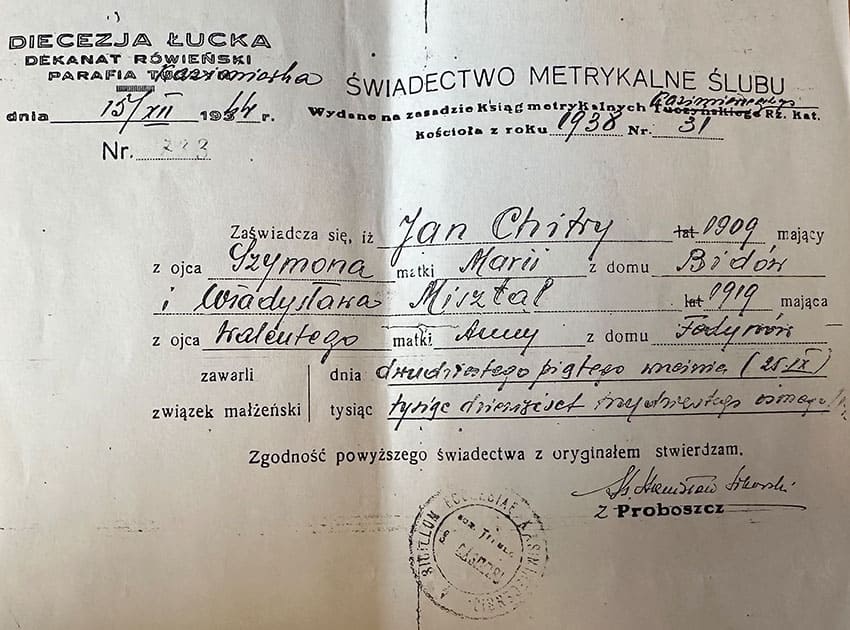 DIECEZJA ŁUCKA
DEKANAT RÓWIEŃSKI
PARAFIA Kazimierska
dnia 15/XII 1944 r.
Nr. 223
ŚWIADECTWO METRYKALNE ŚLUBU
Wydane na zasadzie Ksiąg metrykalnych Tuczyńskiego Rz. Kat.
Kościoła z roku 1938 Nr. 31
Zaświadcza się, iż Jan Chitry lat 1909 mający
z ojca Szymona matki Marii z domu Bidów
i Władysława Misztal lat 1919 mająca
z ojca Walentego matki Anny z domu
zawarli dnia dwudziestego piątego września (25.IX)
związek małżeński tysiąc tysiąc dziewięćset trzydziestego ósmego
Zgodność powyższego świadectwa z oryginałem stwierdzam.
Ks. Stanisław Sikorski
z Proboszcz
SIGILLUM ECCLESIAE